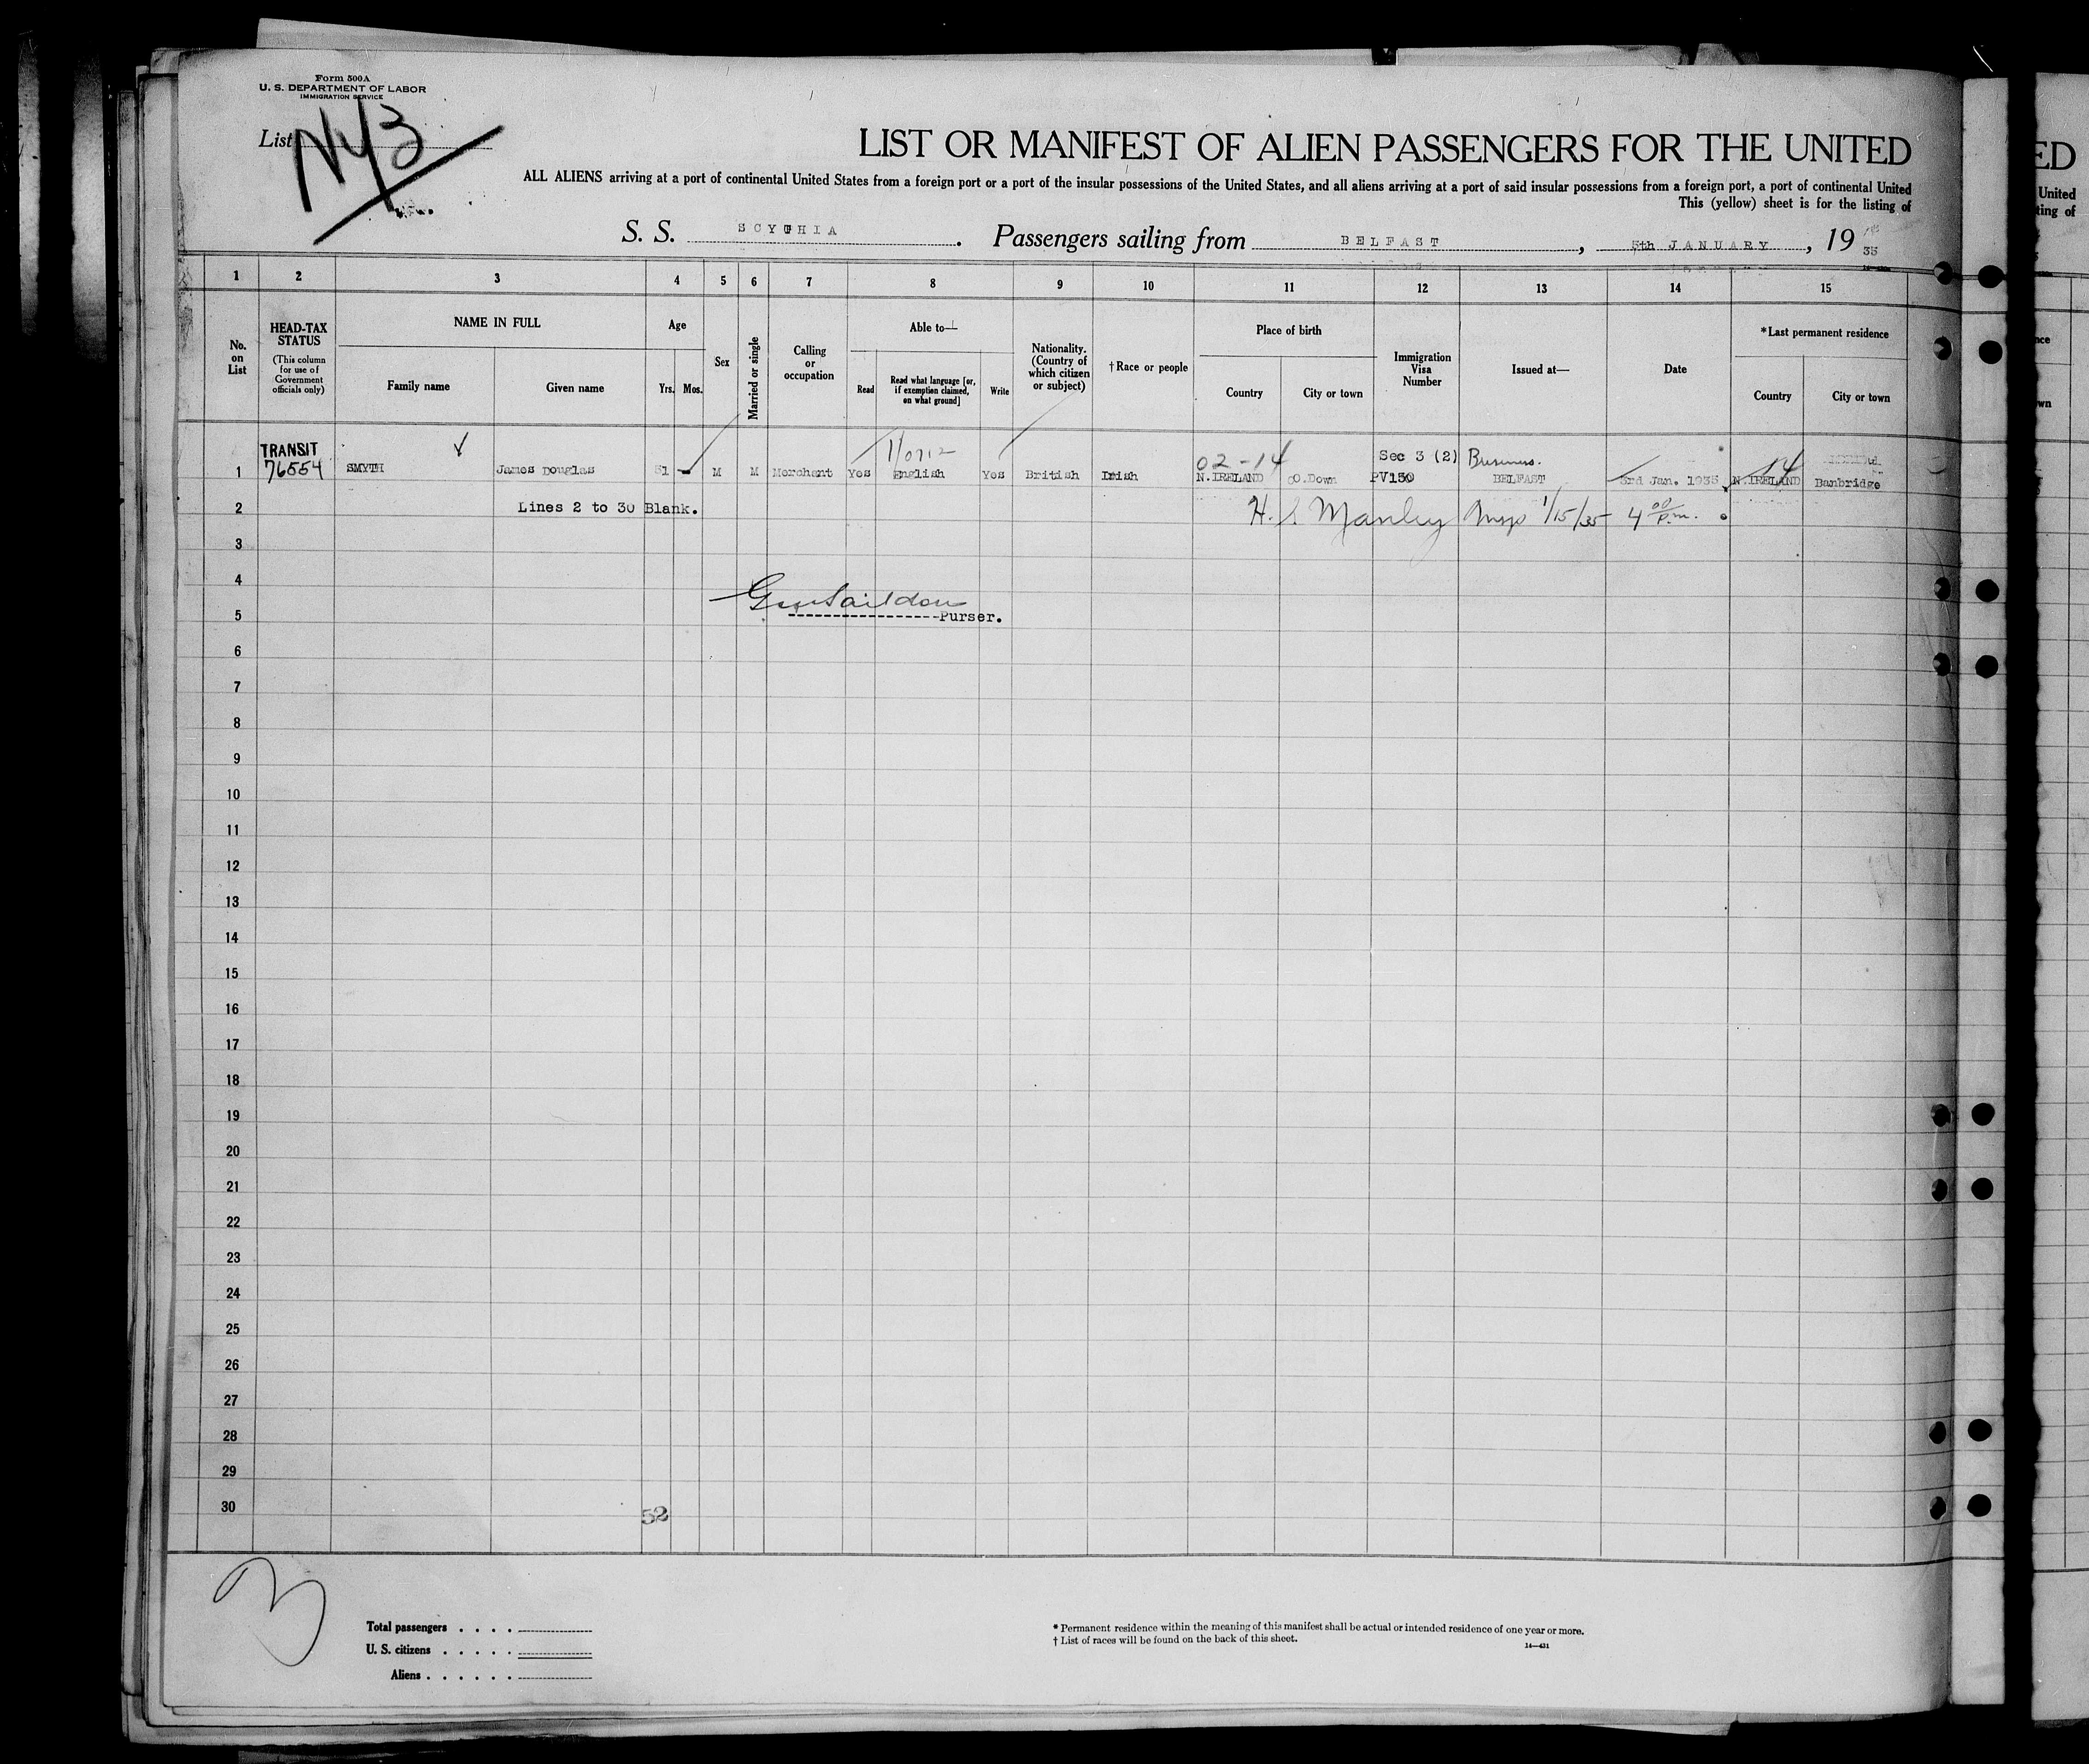 Form 500A
U. S. DEPARTMENT OF LABOR
IMMIGRATION SERVICE
List
NY3
LIST OR MANIFEST OF ALIEN PASSENGERS FOR THE UNITED
ALL ALIENS arriving at a port of continental United States from a foreign port or a port of the insular possessions of the United States, and all aliens arriving at a port of said insular possessions from a foreign port, a port of continental United
This (yellow) sheet is for the listing of
S. S. SCYTHIA. Passengers sailing from BELFAST, 5th JANUARY, 19 35
1 2 3 4 5 6 7 8 9 10 11 12 13 14 15
No. on List
HEAD-TAX STATUS (This column for use of Government officials only)
NAME IN FULL
Family name Given name
Age
Yrs. Mos.
Sex
Married or single
Calling or occupation
Able to—
Read
Read what language [or, if exemption claimed, on what ground]
Write
Nationality. (Country of which citizen or subject)
† Race or people
Place of birth
Country City or town
Immigration Visa Number
Issued at—
Date
*Last permanent residence
Country City or town
TRANSIT 02-14 Sec 3 (2) Business. 14
1 76554 SMYTH James Douglas 51 - M M Merchant Yes English Yes British Irish N.IRELAND CO.Down PV150 BELFAST 3rd Jan. 1935 N.IRELAND Banbridge
2 Lines 2 to 30 Blank. H. Manley Insp 1/15/35 4 00 P.m.
3
4
5 Purser.
6
7
8
9
10
11
12
13
14
15
16
17
18
19
20
21
22
23
24
25
26
27
28
29
30
52
3
Total passengers . . . .
U. S. citizens . . . . .
Aliens . . . . . .
* Permanent residence within the meaning of this manifest shall be actual or intended residence of one year or more.
† List of races will be found on the back of this sheet.
14—431
ED
United
ting of
nce
wn